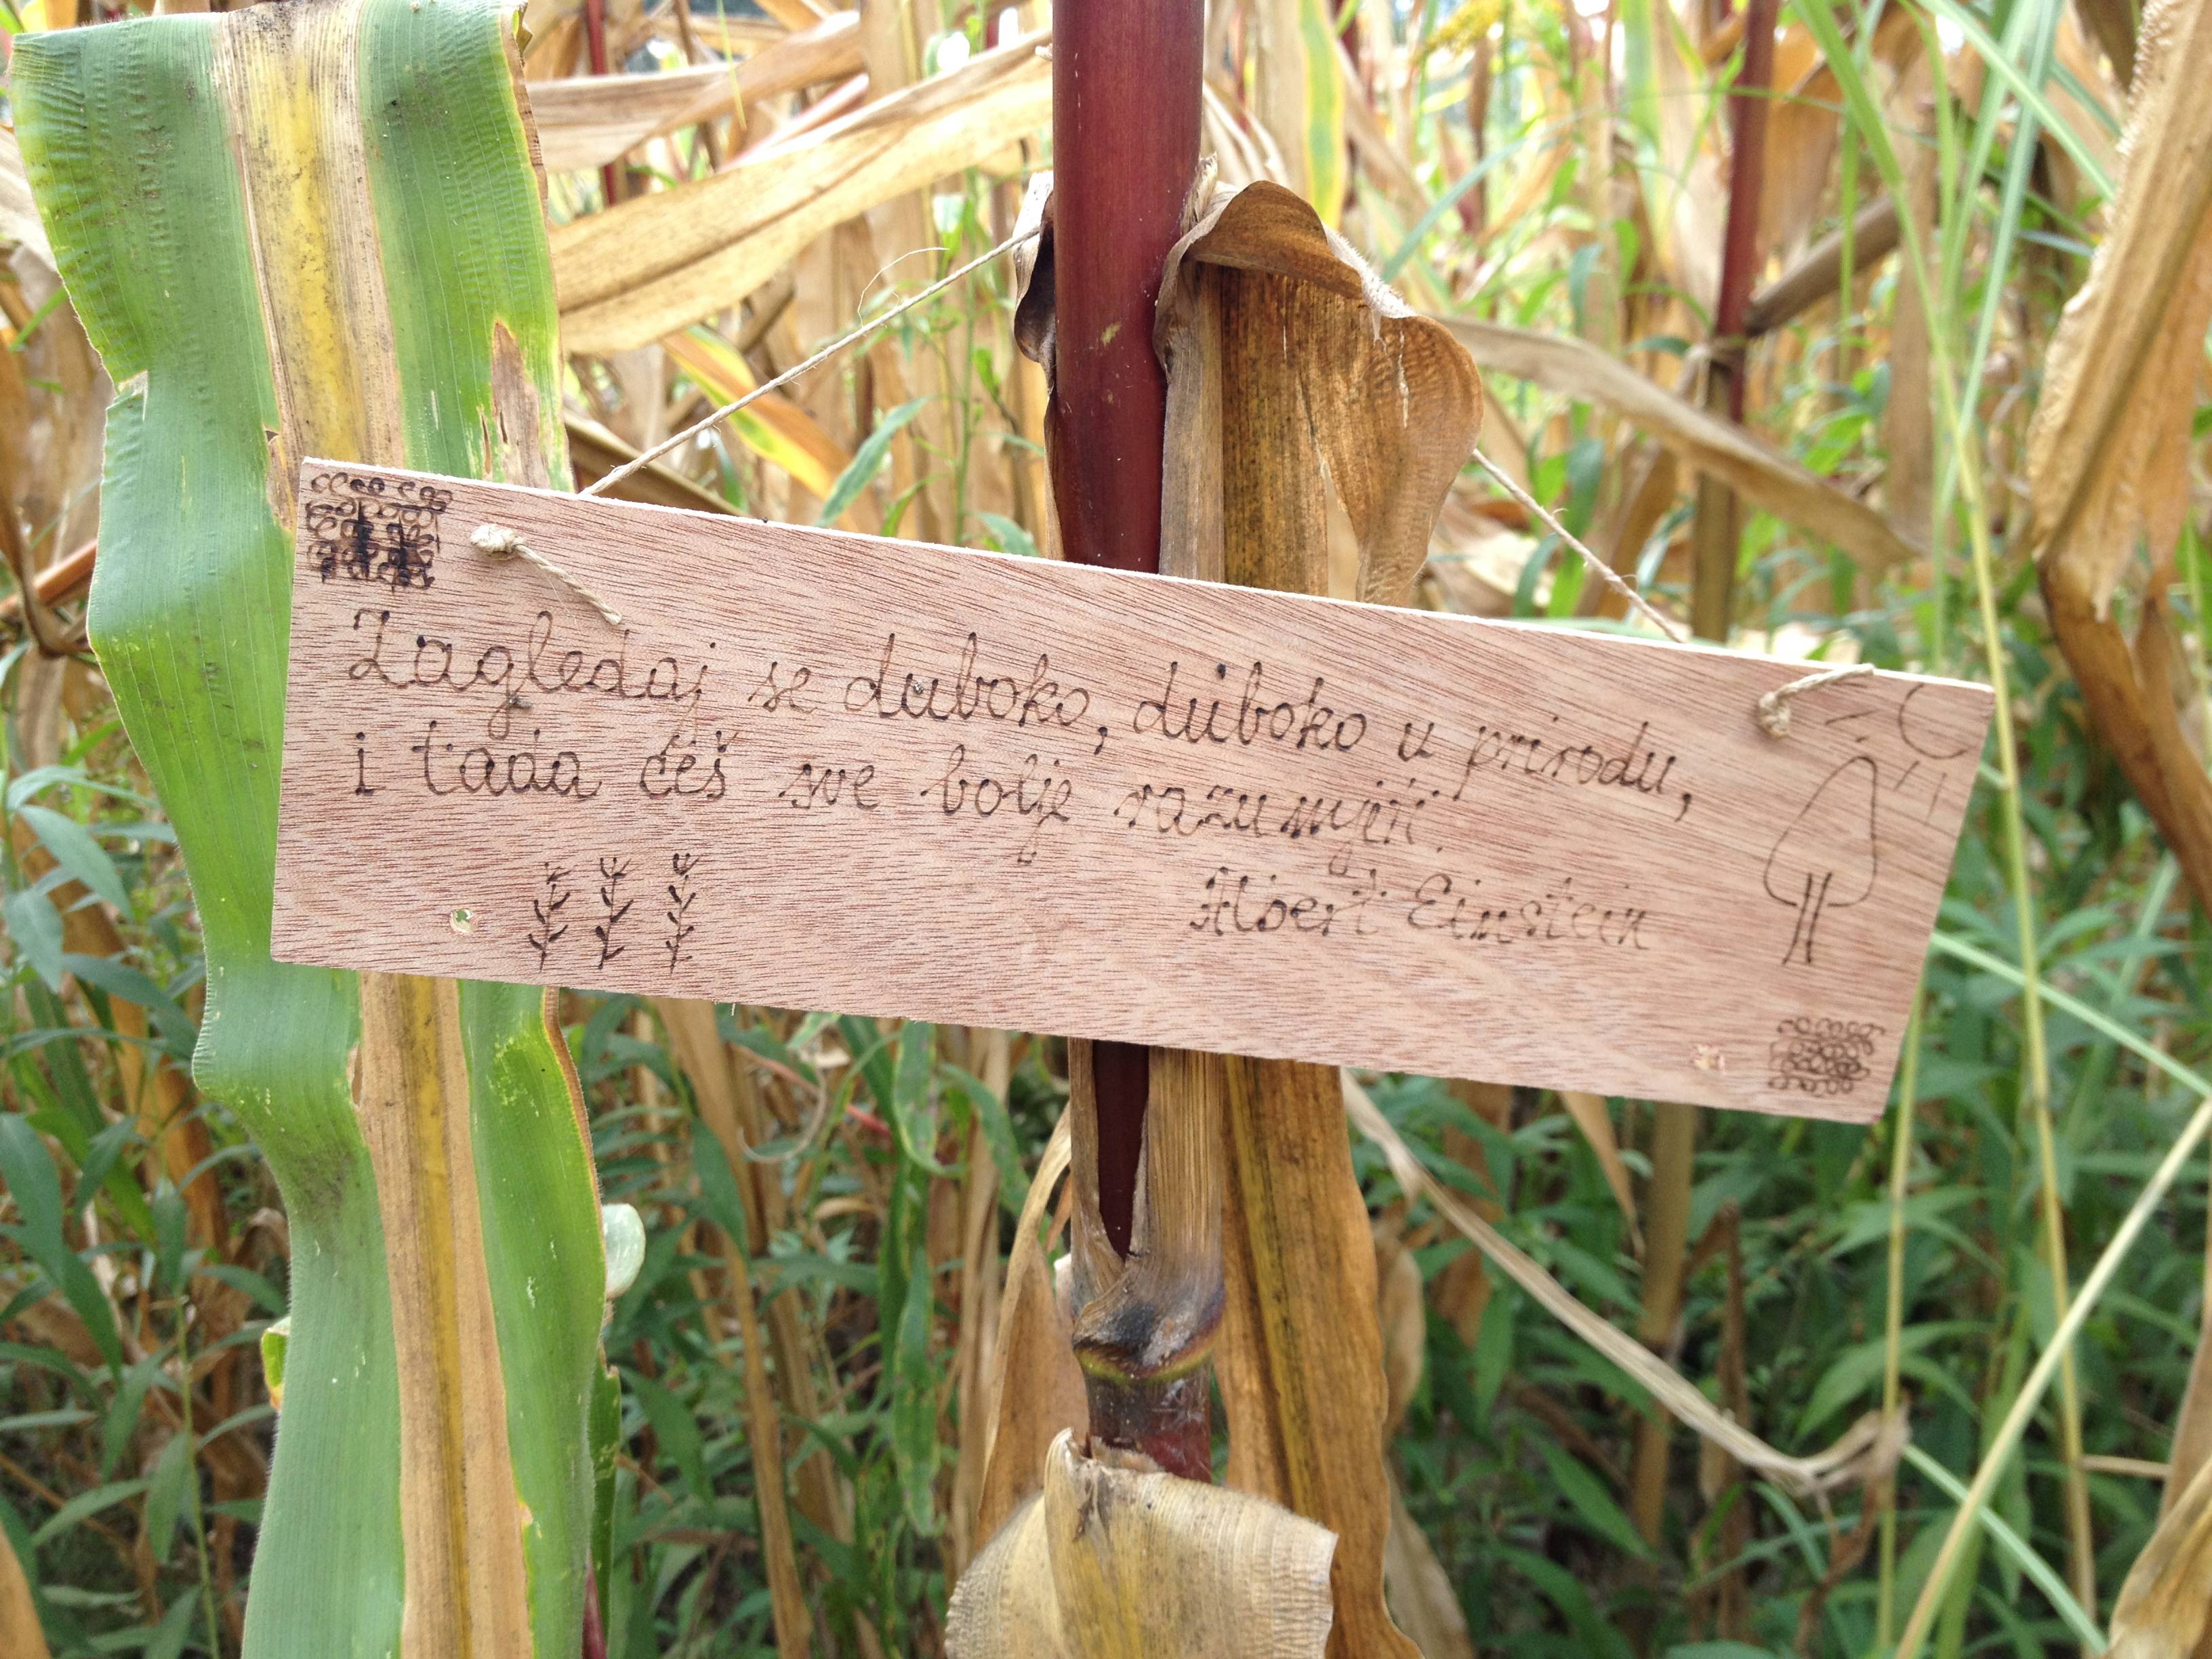 Zagledaj se duboko, duboko u prirodu,
i tada ćeš sve bolje razumjeti.
Albert Einstein